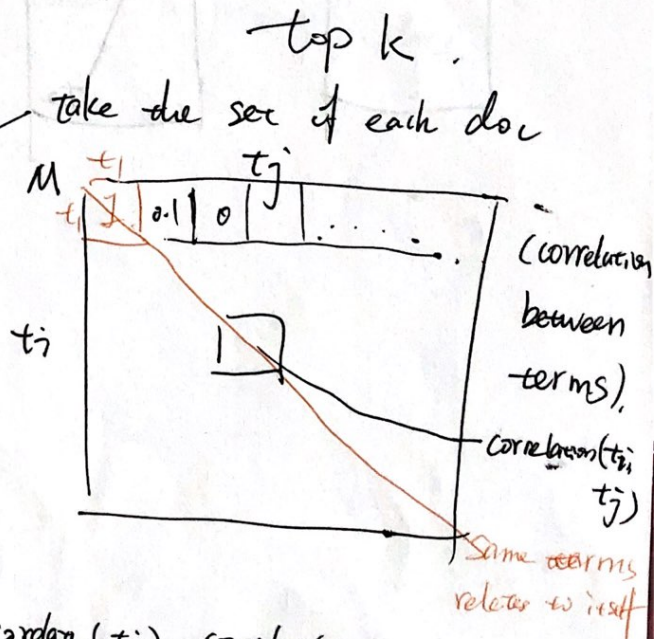 top k.
take the set of each doc
M t1 tj
t1 1 0.1 0 .......
(correlation
between
terms).
ti
correlation(ti,
tj)
Same terms
relates to itself
(ti)